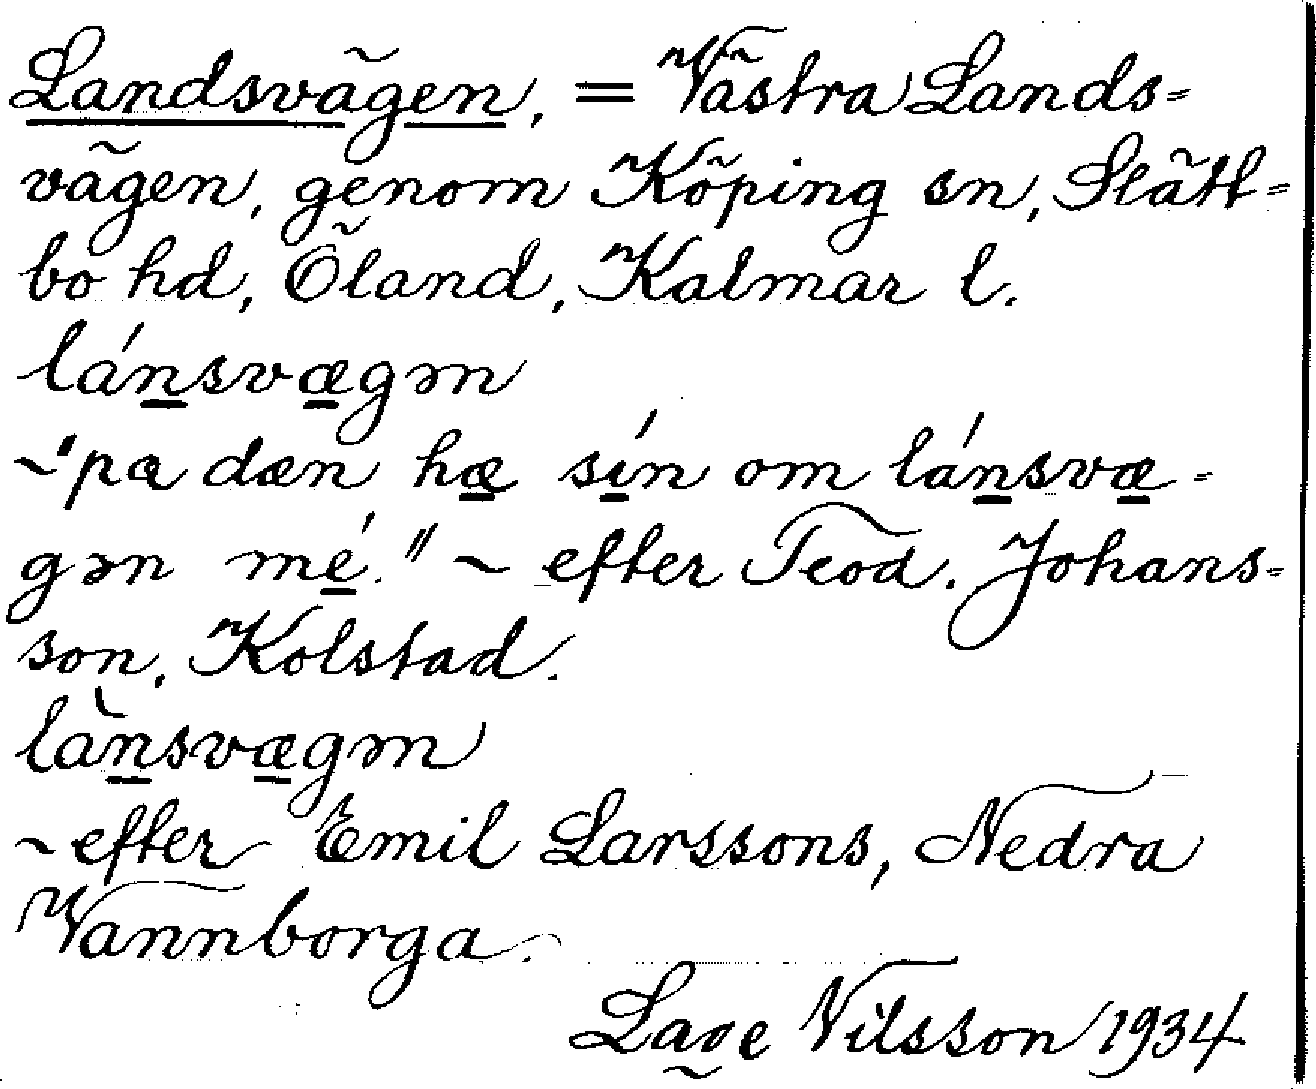 Landsvägen, = Västra Lands-
vägen, genom Köping sn, Slätt-
bo hd, Öland, Kalmar l.
lánsvægən
~"pæ dæn hæ sín om lánsvæ-
gən mé." ~ efter Teod. Johans-
son, Kolstad.
lànsvægən
~ efter Emil Larssons, Nedra
Vannborga.
Lage Nilsson 1934